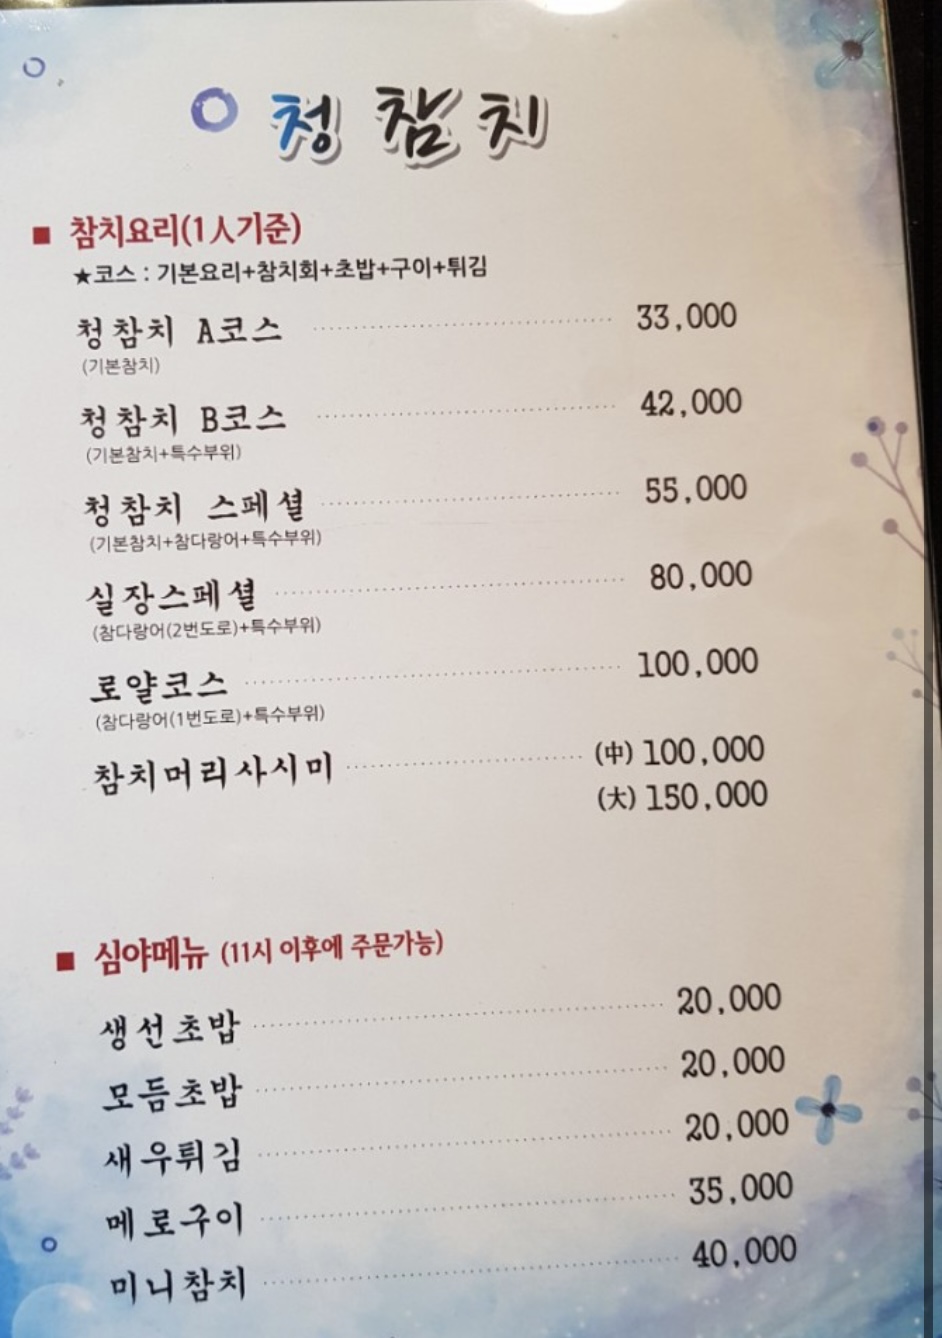 청참치
■ 참치요리(1人기준)
★코스 : 기본요리+참치회+초밥+구이+튀김
청참치 A코스 33,000
(기본참치)
청참치 B코스 42,000
(기본참치+특수부위)
청참치 스페셜 55,000
(기본참치+참다랑어+특수부위)
실장스페셜 80,000
(참다랑어(2번도로)+특수부위)
로얄코스 100,000
(참다랑어(1번도로)+특수부위)
참치머리사시미 (中) 100,000
(大) 150,000
■ 심야메뉴 (11시 이후에 주문가능)
생선초밥 20,000
모듬초밥 20,000
새우튀김 20,000
메로구이 35,000
미니참치 40,000